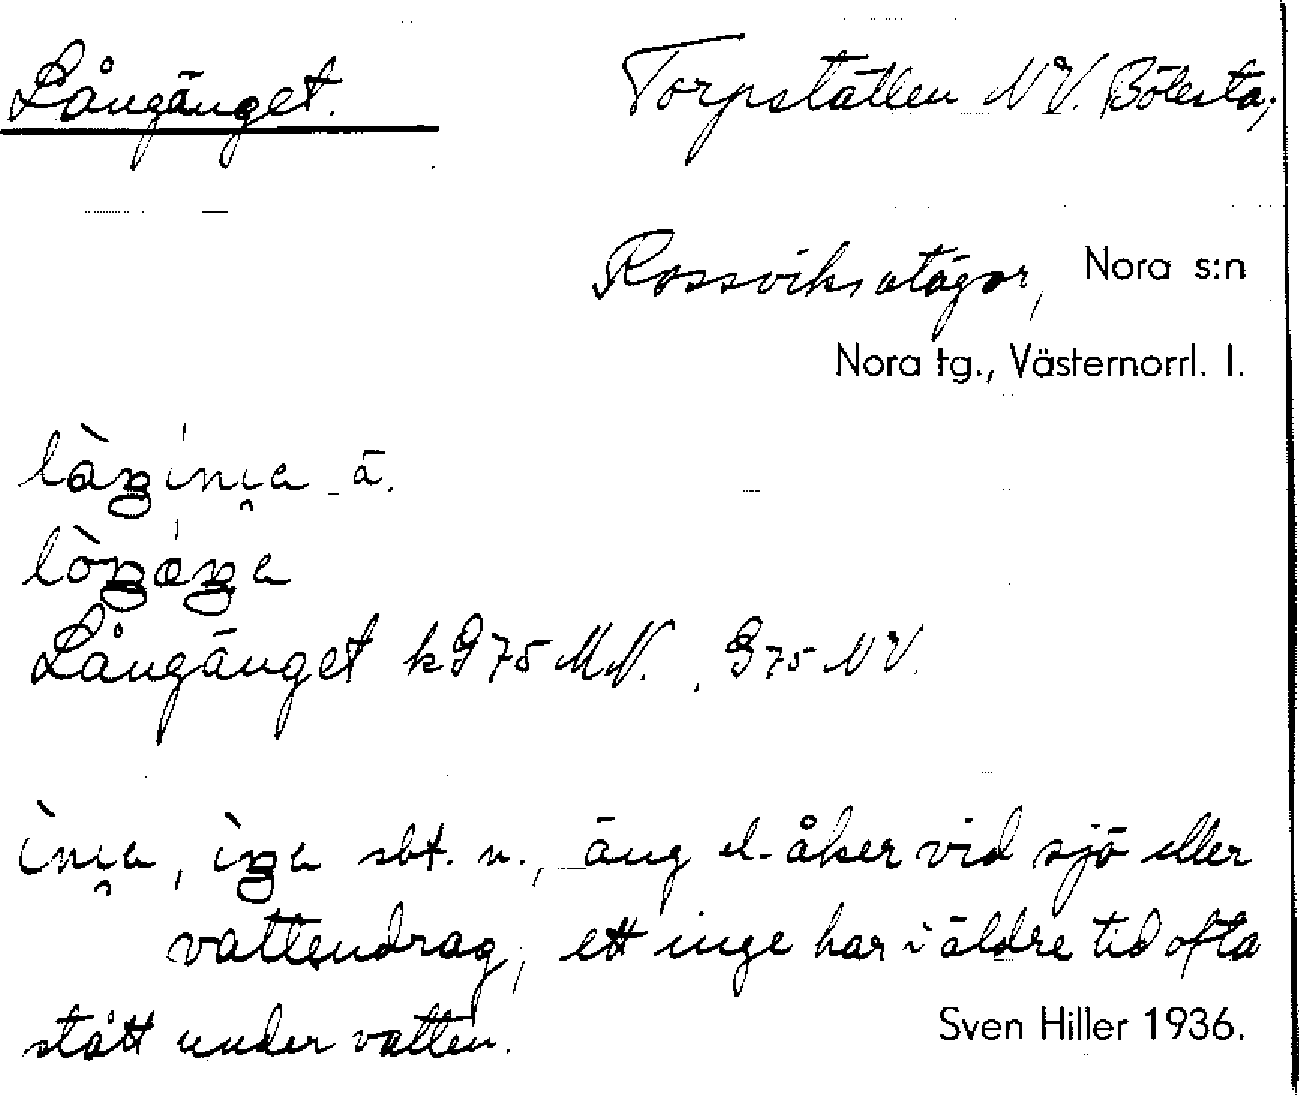 Långänget.
Torpställen NV. Bölesta,
Rossviks utägor, Nora s:n
Nora tg., Västernorrl. l.
ä.
Långänget k 975 MN. 975 NV.
sbt. n., äng el. åker vid sjö eller
vattendrag, ett inge har i äldre tid ofta
stått under vatten.
Sven Hiller 1936.